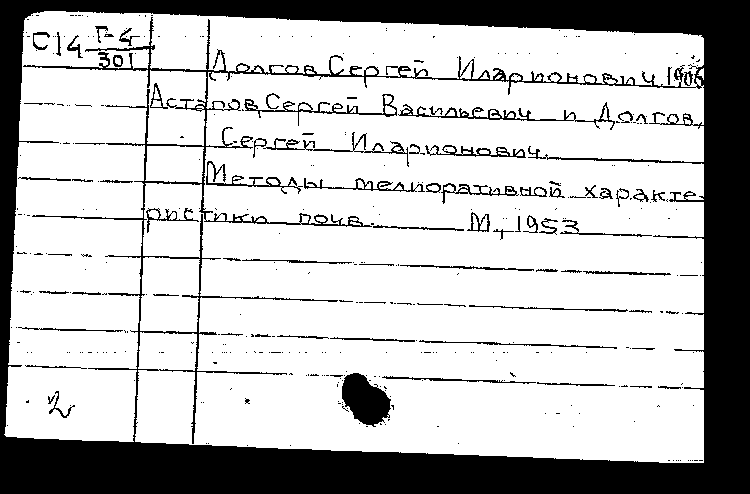 С14 Г-4/301
Долгов, Сергей Иларионович, 1905
Астапов, Сергей Васильевич и Долгов,
Сергей Иларионович.
Методы мелиоративной характе-
ристики почв. М., 1953
2